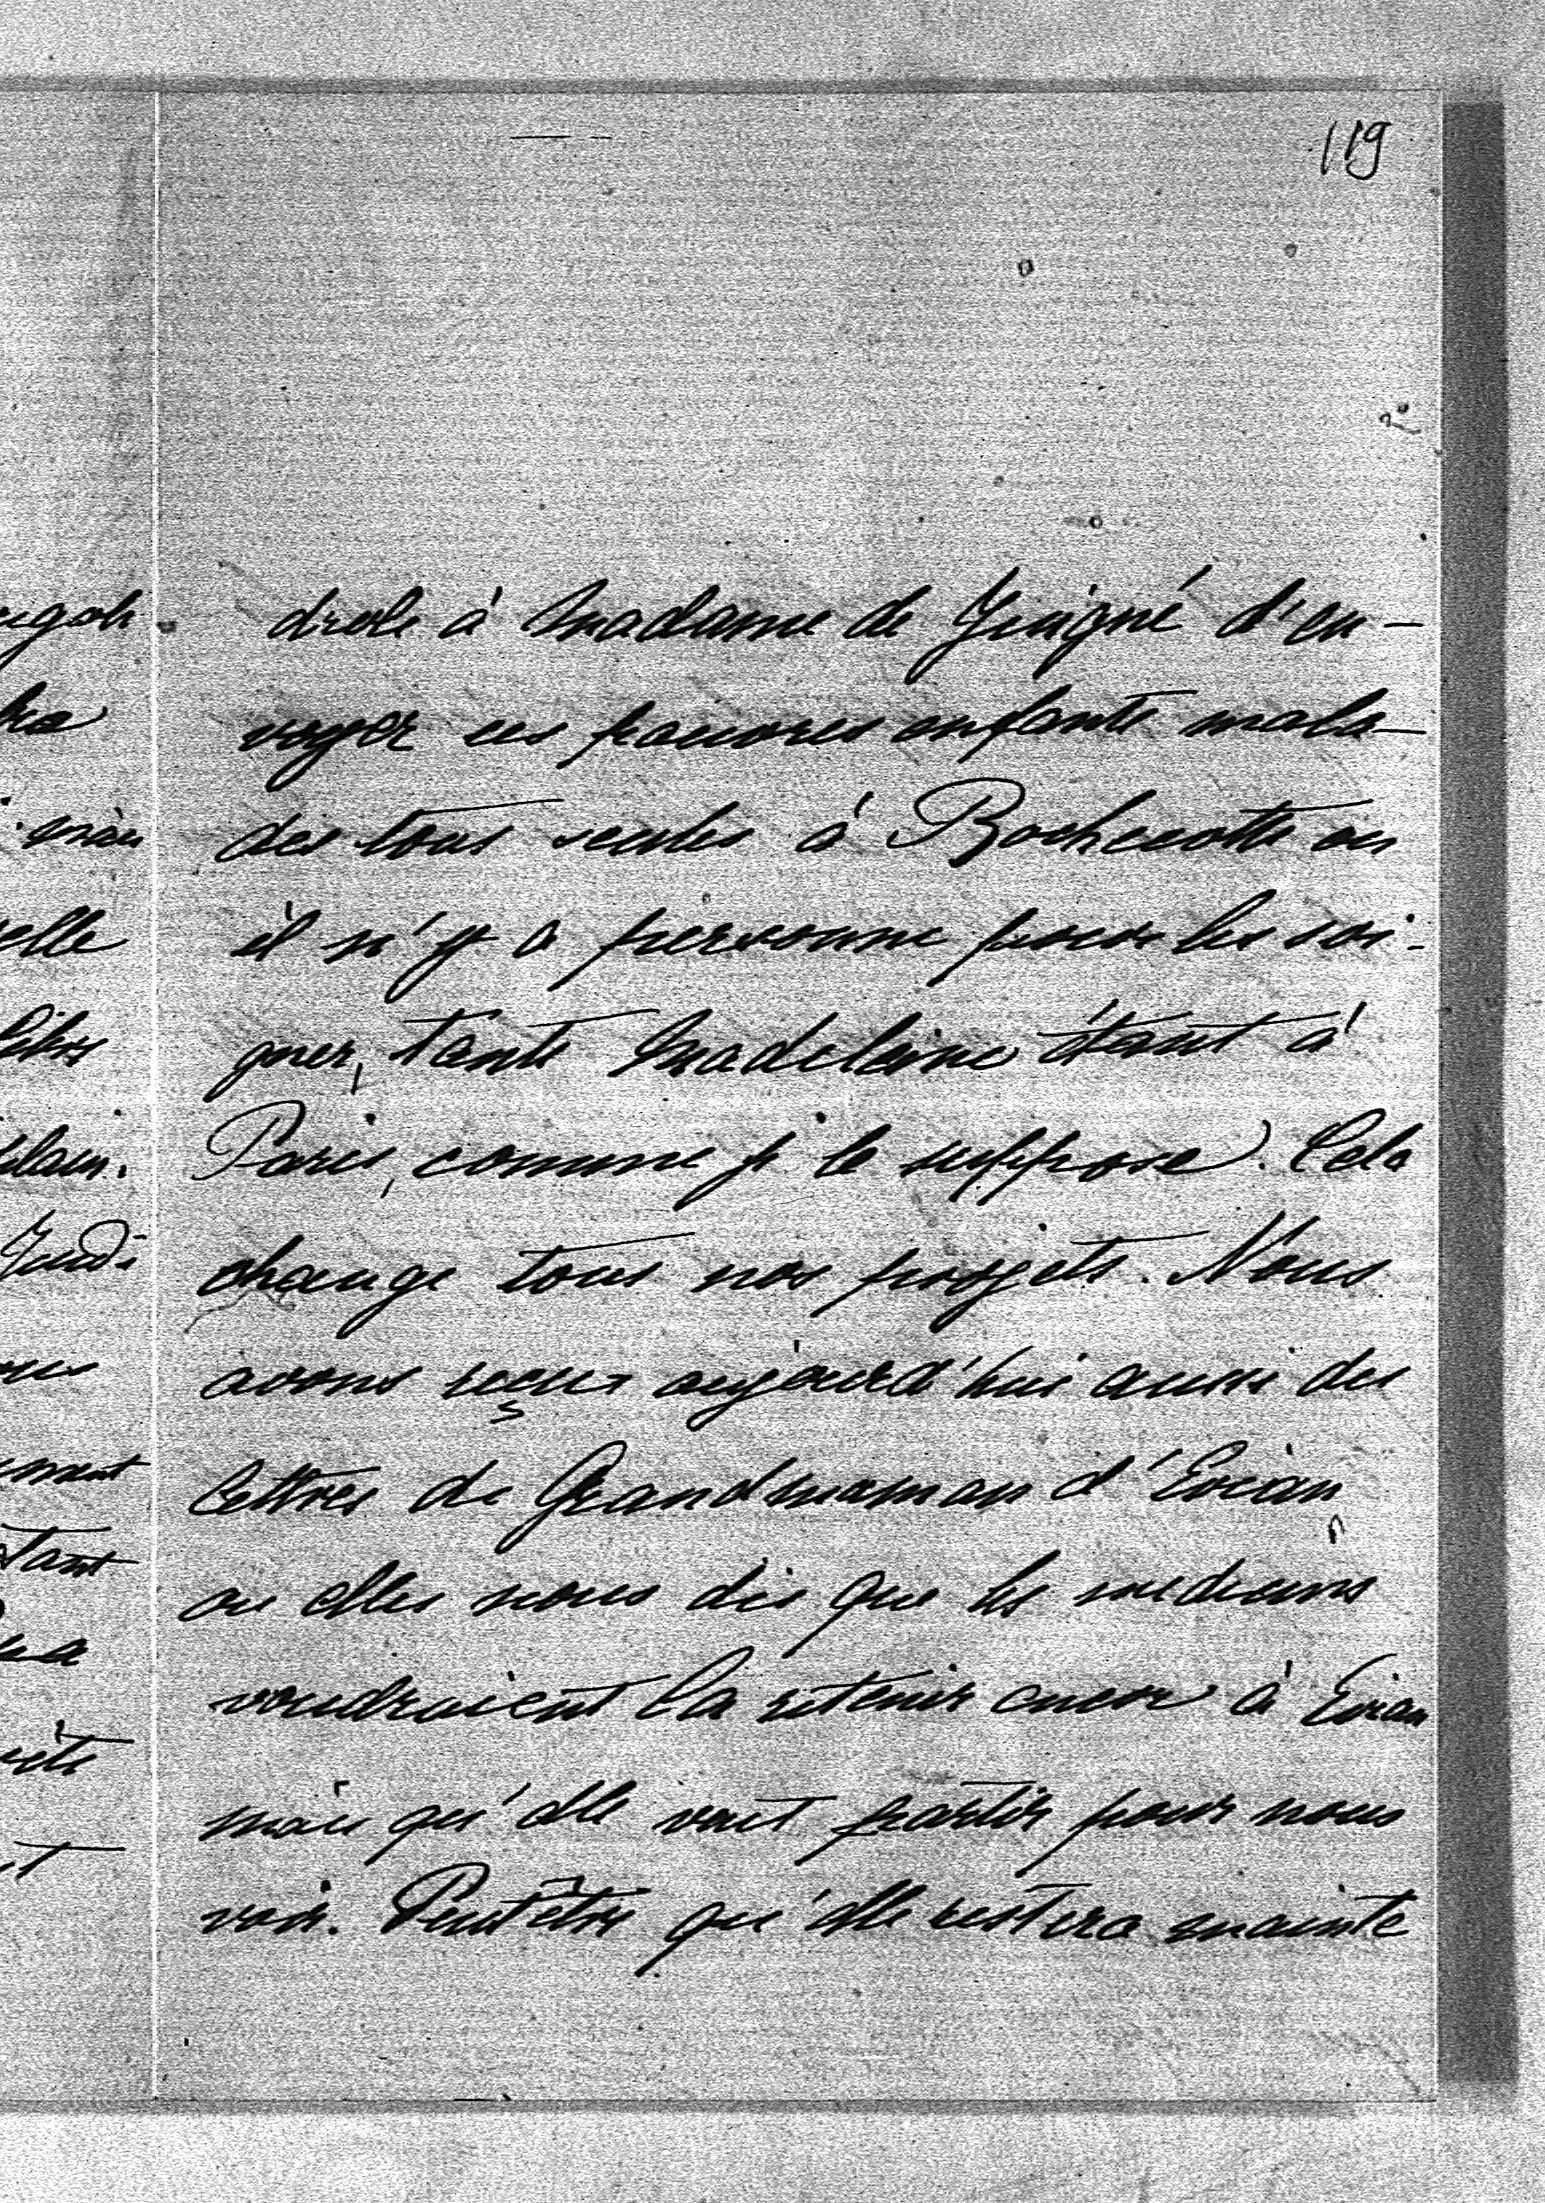 119
drole à Madame de Juigné d'en-
voyer ces pauvres enfants mala-
des tous seules à Rochecotte ou
il n'y a personne pour les soi-
gner, tante Madeleine étant à
Paris, comme je le suppose. Cela
change tous nos projets. Nous
avons reçus aujourd'hui aussi des
lettres de Grandmaman d'Evian
ou elles nous dis que les medecins
voudraient la retenir encore à Evian
mais qu'elle veut partir pour nous
voir. Peut être qu'elle restera mainte